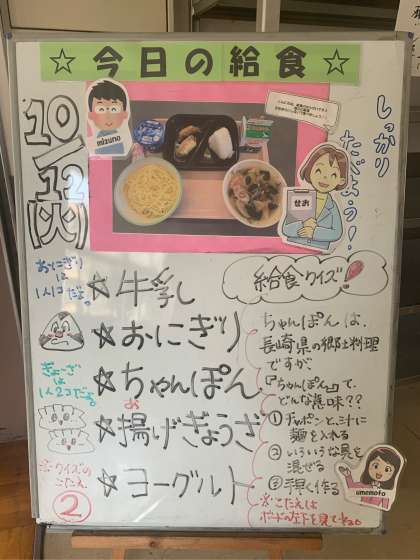 ☆今日の給食☆
10/12(火)
mizuno
せお
しっかり
たべよう!
おにぎりは
1人1コだよ。
ぎょーざは
1人2コだよ
☆牛乳
☆おにぎり
☆ちゃんぽん
☆お揚げぎょうざ
☆ヨーグルト
給食クイズ!
ちゃんぽんは、
長崎県の郷土料理
ですが
『ちゃんぽん』て、
どんな意味??
①チャポンと、汁に
麺を入れる
②いろいろな具を
混ぜる
③手早く作る
※こたえは
ボードの左下を見てね
umemoto
※クイズの
こたえ
②